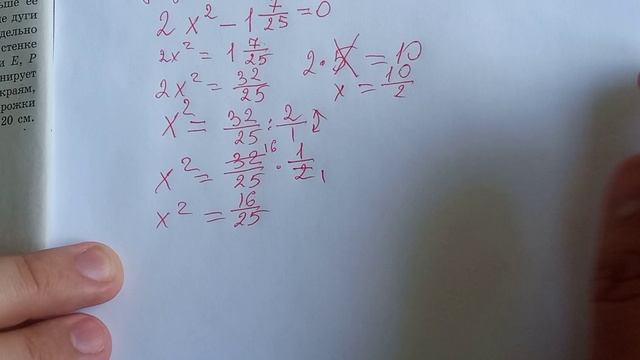 ше ее
дуги
дельно
стенке
и E, P
нирует
краям,
рожки
20 см.
2x² - 1 7/25 = 0
2x² = 1 7/25
2x² = 32/25
x² = 32/25 : 2/1
x² = 32/25 16 · 1/2 1
x² = 16/25
2 · x = 10
x = 10/2